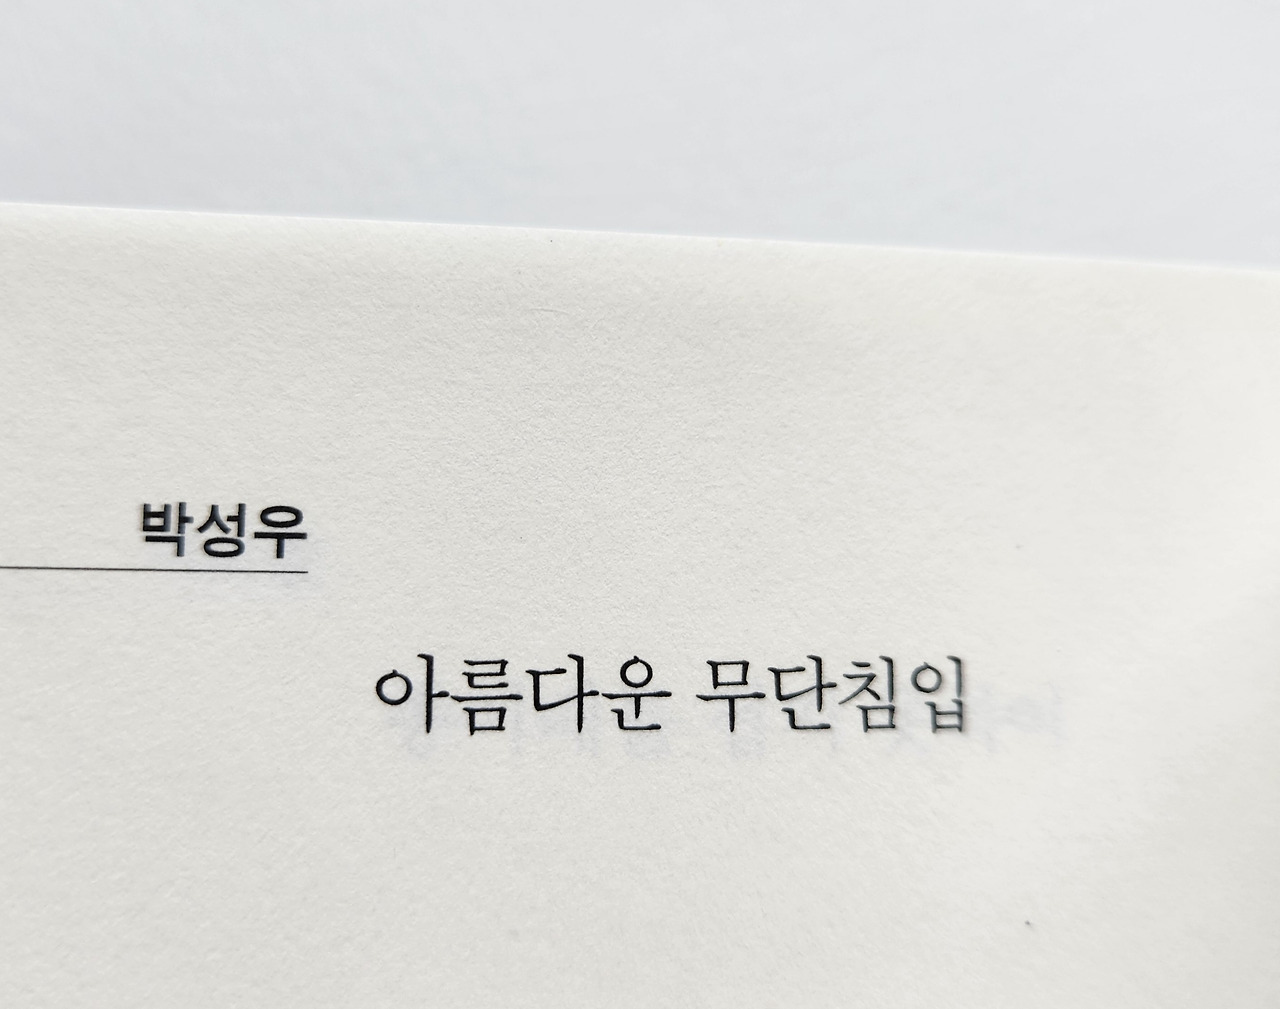 박성우
아름다운 무단침입